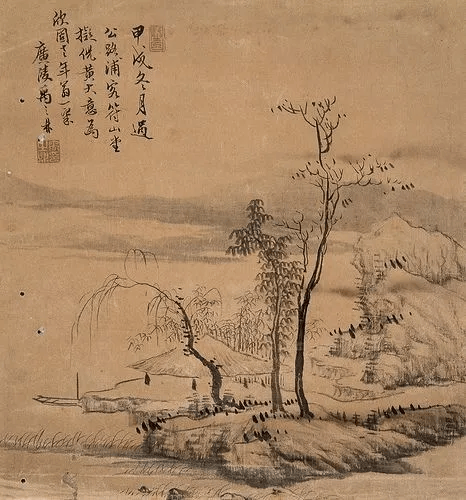 甲戌冬月過
公路浦客符山堂
擬倪黃大意為
欣老年翁一粲
廣陵禹之鼎